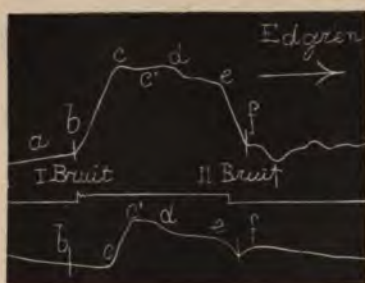 Edgren
c
d
c'
e
b
f
a
I Bruit
II Bruit
c'
d
e
f
b
c